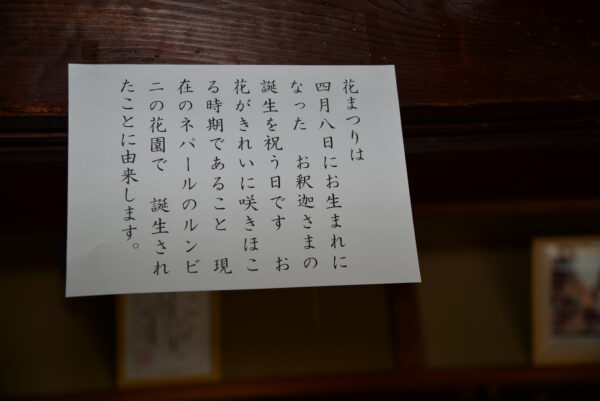 花まつりは
四月八日にお生まれに
なった お釈迦さまの
誕生を祝う日です お
花がきれいに咲きほこ
る時期であること 現
在のネパールのルンビ
ニの花園で 誕生され
たことに由来します。